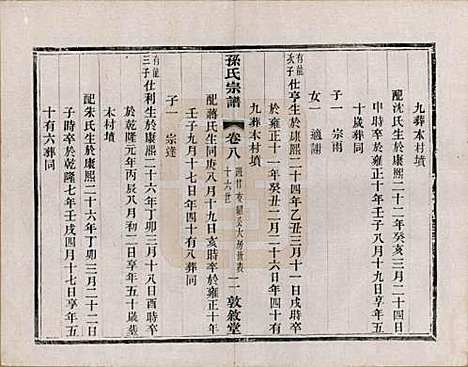 九葬本村墳
配沈氏生於康熙二十二年癸亥三月二十四日
申時卒於雍正十年壬子八月九日戌時年五
十歲葬同
子一 宗雨
女一 適
有能次子仕亨生於康熙二十四年乙丑三月十一日戌時
卒於雍正十一年癸丑二月二十六日
九葬本村墳
孫氏宗譜 卷八 十六世 二 敦敘堂
配蔣氏生同庚八月十九日亥時卒於雍正十年
九月十七日年四十八葬同
子一 宗達
有能三子仕利生於康熙二十六年丁卯三月十八日酉時卒
於乾隆元年丙辰八月初一日年五十歲葬
本村墳
配朱氏生於康熙二十六年丁卯三月二十二日
子時卒於乾隆七年壬戌四月十七日年五
十有六葬同